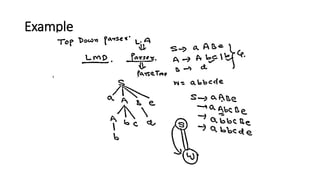 Example
Top Down Parser:
L.A
LMD
Parser
Parse Tree
S → a A B e
A → A b c | b
B → d
G.
w = abbcde
S
a A B e
A b c d
b
S → aABe
→ aAbcBe
→ abbcBe
→ abbcde
S
W